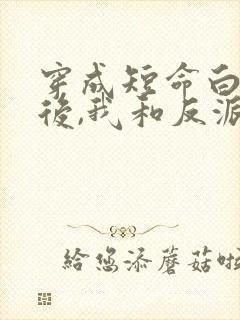 穿成短命白
後,我和反派
給您添蘑菇啦